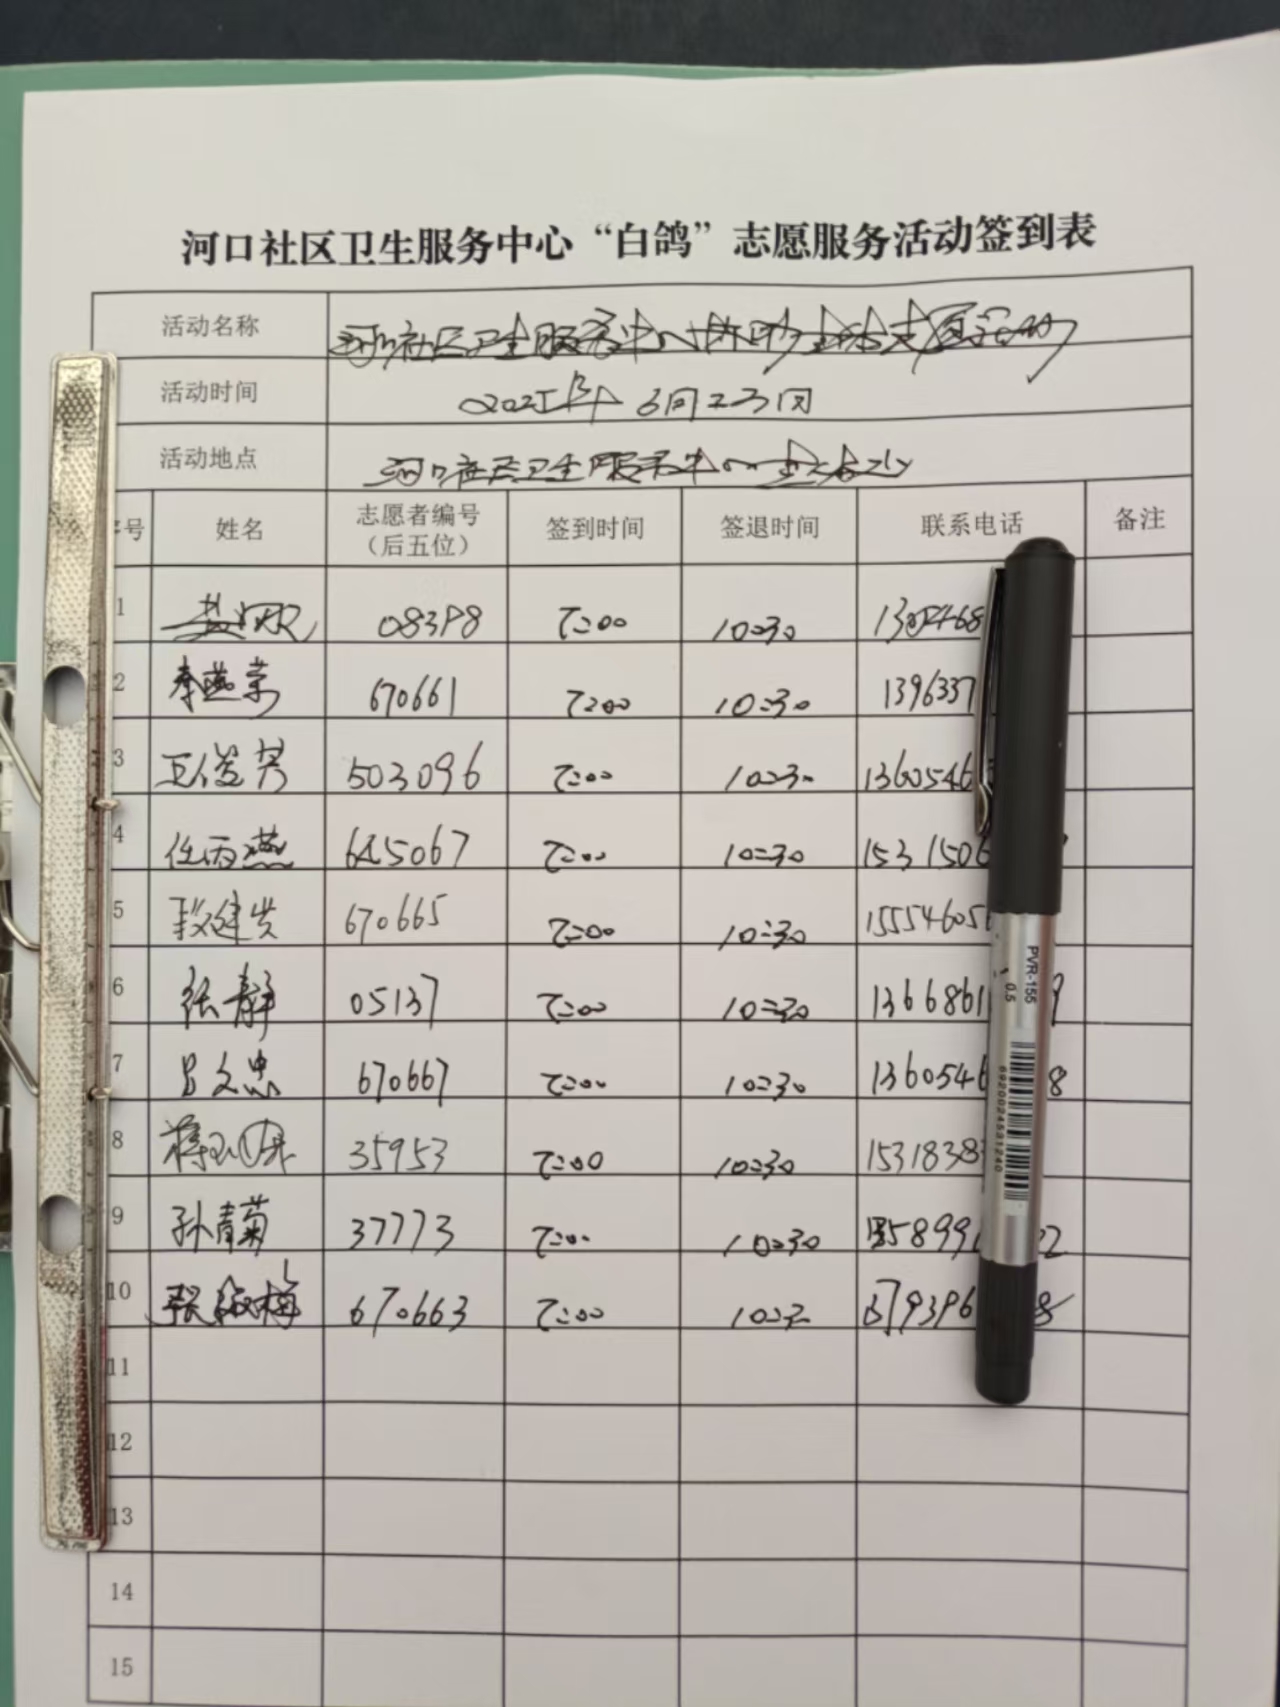 河口社区卫生服务中心“白鸽”志愿服务活动签到表
活动名称 河口社区卫生服务中心协助
活动时间 2025年 6月23日
活动地点 河口社区卫生服务中心
序号 姓名 志愿者编号（后五位） 签到时间 签退时间 联系电话 备注
1 08398 7:00 10:30 1305468
2 李燕荣 670661 7:00 10:30 1396337
3 王俊芳 503096 7:00 10:30 13605463
4 任丙燕 645067 7:00 10:30 1531506
5 段建贵 670665 7:00 10:30 15554605
6 张静 05137 7:00 10:30 1366861 9
7 吕文忠 670667 7:00 10:30 1360546 8
8 35953 7:00 10:30 1531838
9 孙青菊 37773 7:00 10:30 58999 2
10 670663 7:00 10:30 79396 8
11
12
13
14
15
PVR-155
0.5
6920024531240